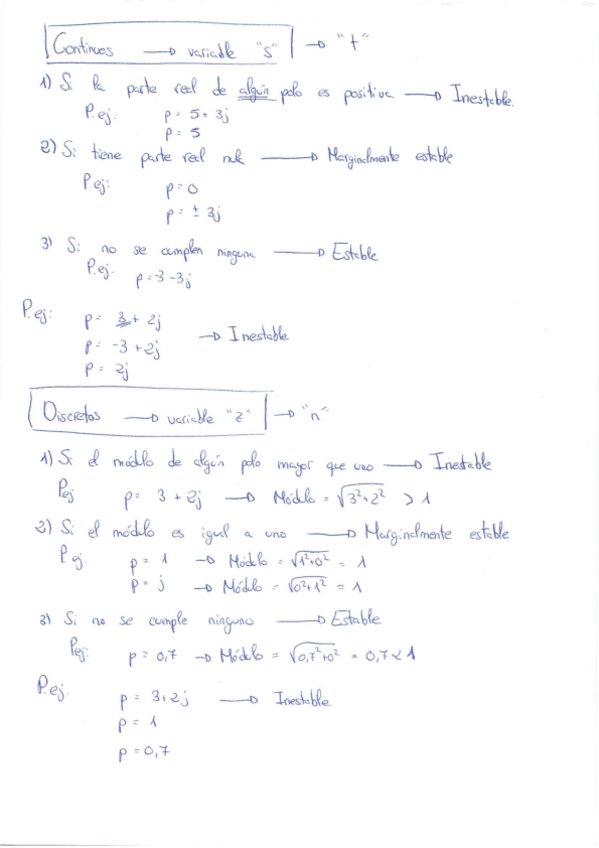 Continuos → variable "s" → "t"
1) Si la parte real de algún polo es positiva → Inestable.
P.ej: p = 5 + 3j
p = 5
2) Si tiene parte real nula → Marginalmente estable
P.ej: p = 0
p = ± 3j
3) Si no se cumplen ninguna → Estable
P.ej. p = -3 -3j
P.ej: p = 3 + 2j
p = -3 + 2j → Inestable
p = 2j
Discretos → variable "z" → "n"
1) Si el módulo de algún polo mayor que uno → Inestable
Pej p = 3 + 2j → Módulo = √3²+2² > 1
2) Si el módulo es igual a uno → Marginalmente estable
P.ej. p = 1 → Módulo = √1²+0² = 1
p = j → Módulo = √0²+1² = 1
3) Si no se cumple ninguno → Estable
Pej: p = 0,7 → Módulo = √0,7²+0² = 0,7 < 1
P.ej. p = 3+2j → Inestable
p = 1
p = 0,7